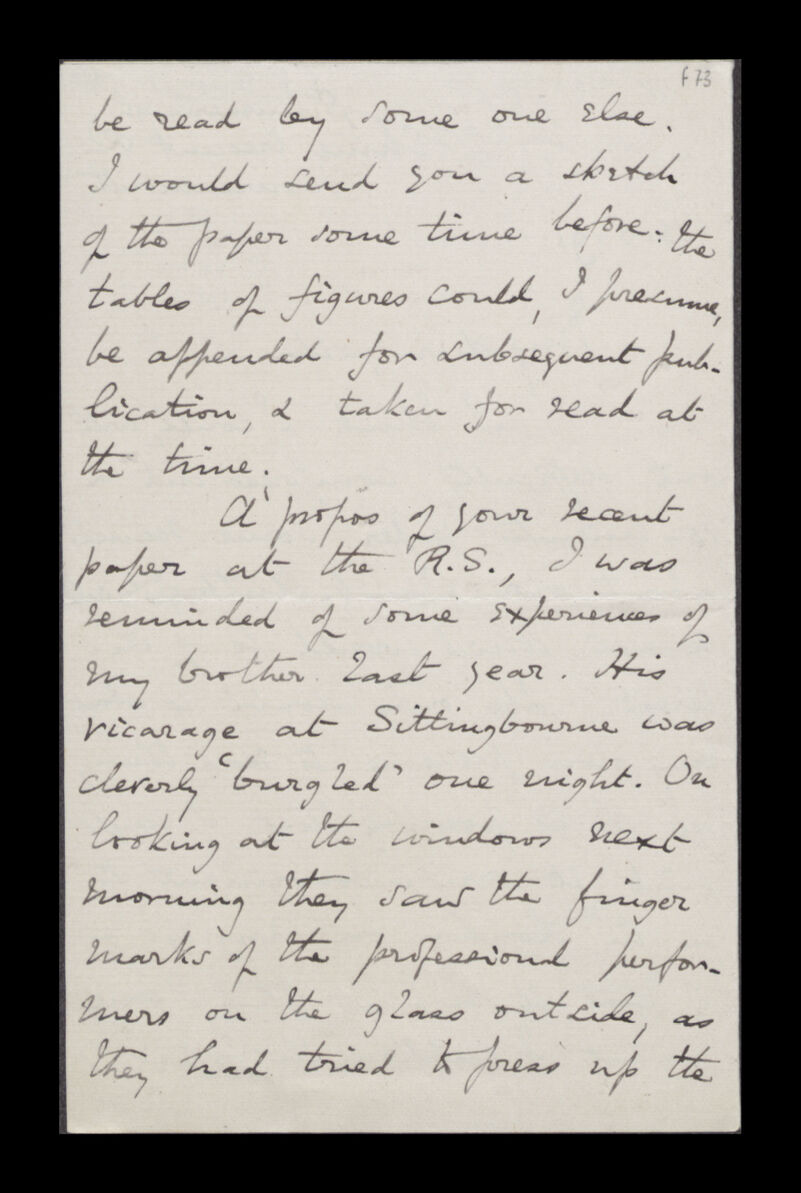 f 73
be read by some one else.
I would send you a sketch
of the paper some time before: the
tables of figures could, I presume,
be appended for subsequent pub-
lication, & taken for read at
the time.
A'propos of your recent
paper at the R.S., I was
reminded of some experiences of
my brother last year. His
vicarage at Sittingbourne was
cleverly 'burgled' one night. On
looking at the windows next
morning they saw the finger
marks of the professional perfor-
mers on the glass outside, as
they had tried to press up the